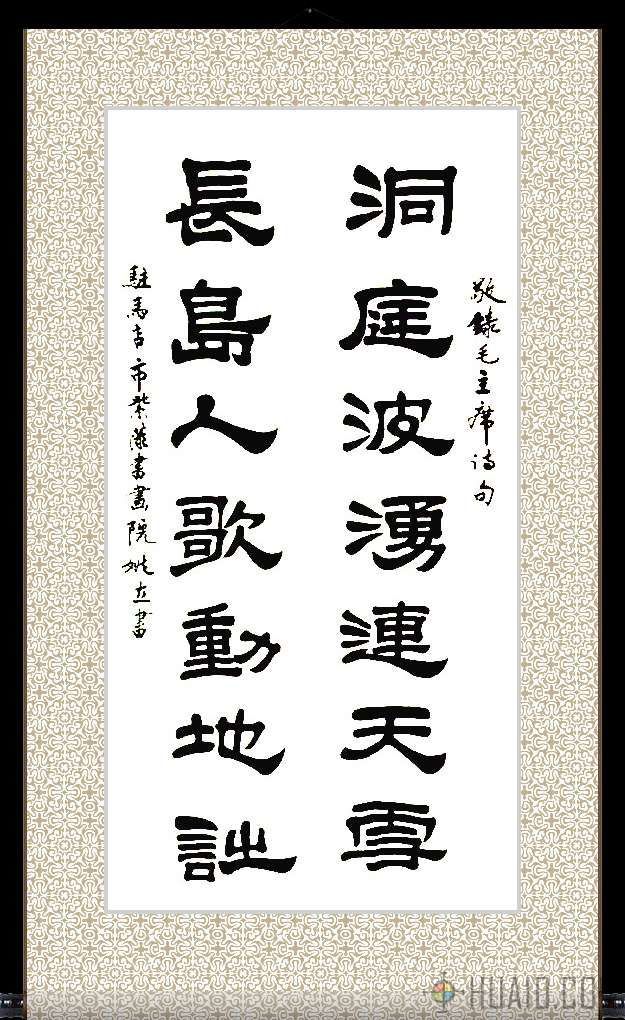 敬錄毛主席诗句
洞庭波湧連天雪
長島人歌動地詩
駐馬店市紫書畫院姚立書